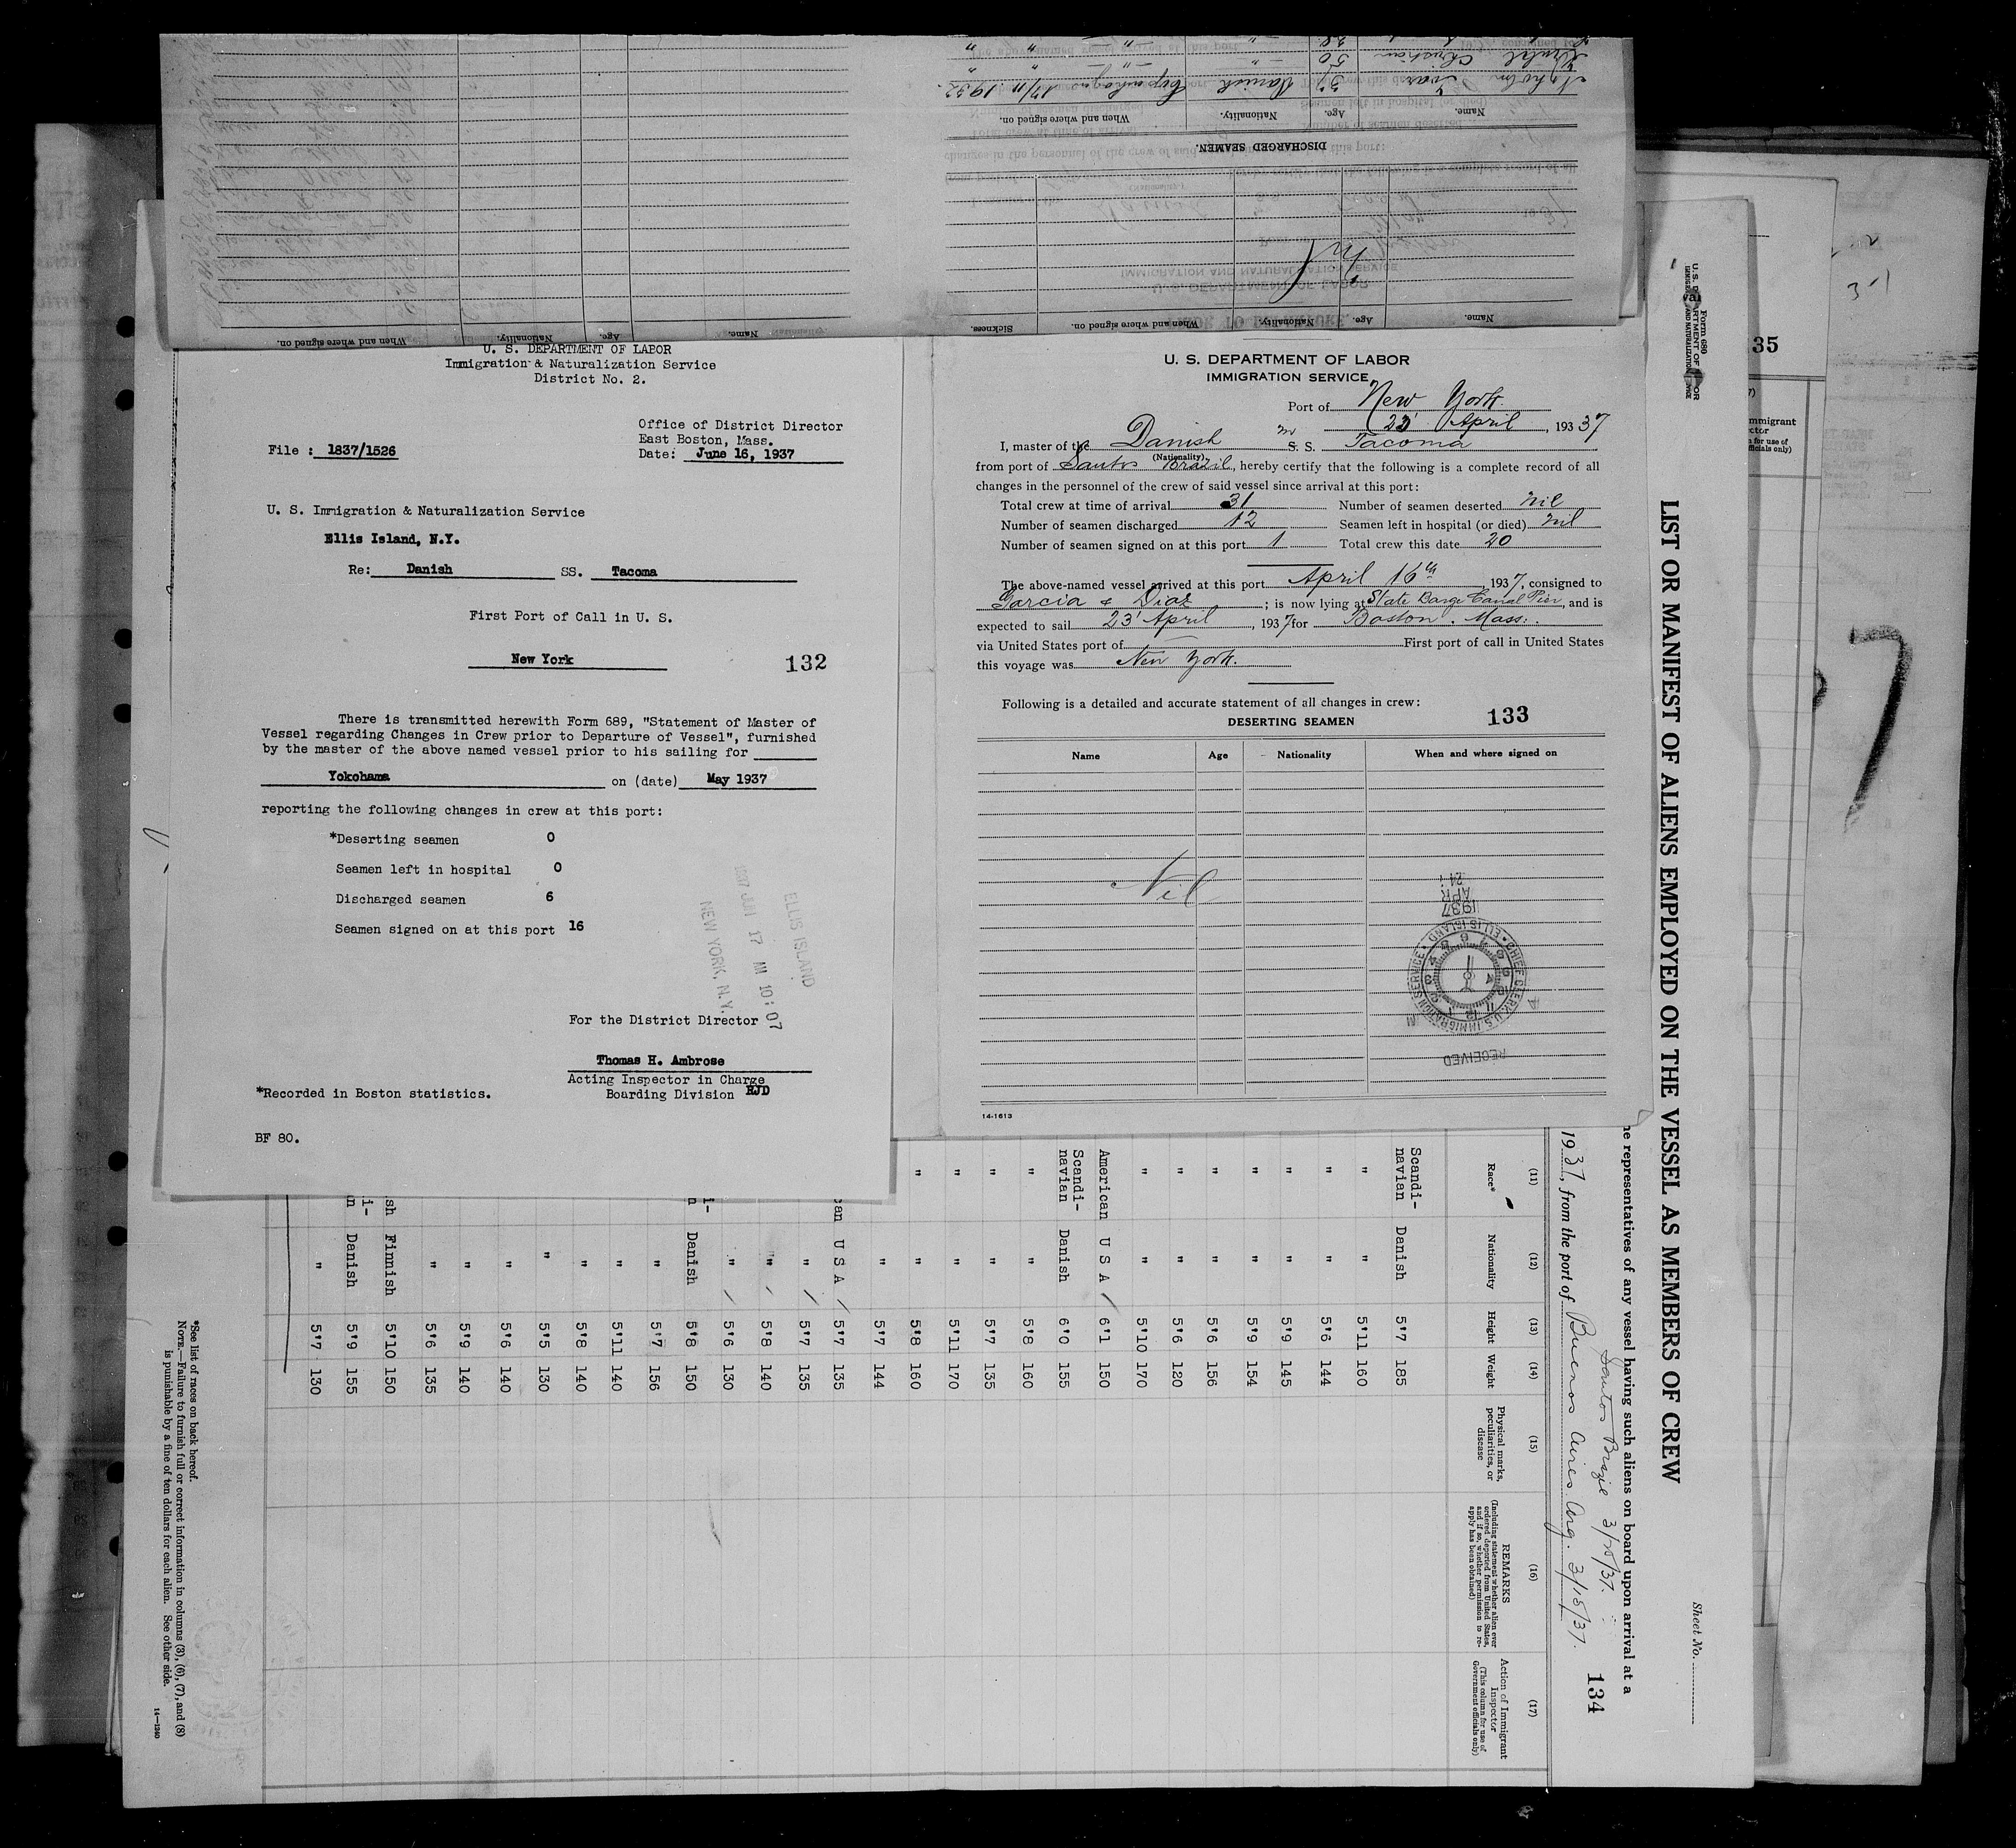 U. S. DEPARTMENT OF LABOR
Immigration & Naturalization Service
District No. 2.
Office of District Director
East Boston, Mass.
File : 1837/1526
Date: June 16, 1937
U. S. Immigration & Naturalization Service
Ellis Island, N.Y.
Re: Danish SS. Tacoma
First Port of Call in U. S.
New York
132
There is transmitted herewith Form 689, "Statement of Master of
Vessel regarding Changes in Crew prior to Departure of Vessel", furnished
by the master of the above named vessel prior to his sailing for
Yokohama on (date) May 1937
reporting the following changes in crew at this port:
*Deserting seamen 0
Seamen left in hospital 0
Discharged seamen 6
Seamen signed on at this port 16
ELLIS ISLAND
1937 JUN 17 AM 10:07
NEW YORK, N.Y.
For the District Director
Thomas H. Ambrose
Acting Inspector in Charge
Boarding Division RJD
*Recorded in Boston statistics.
BF 80.
U. S. DEPARTMENT OF LABOR
IMMIGRATION SERVICE
Port of New York.
22 April, 1937
I, master of the Danish m S. S. Tacoma
(Nationality)
from port of Santos Brazil, hereby certify that the following is a complete record of all
changes in the personnel of the crew of said vessel since arrival at this port:
Total crew at time of arrival 31 Number of seamen deserted nil
Number of seamen discharged 12 Seamen left in hospital (or died) nil
Number of seamen signed on at this port 1 Total crew this date 20
The above-named vessel arrived at this port April 16th, 1937, consigned to
Garcia & Diaz; is now lying at State Barge Canal Pier, and is
expected to sail 23 April, 1937 for Boston. Mass.
via United States port of — First port of call in United States
this voyage was New York.
Following is a detailed and accurate statement of all changes in crew:
DESERTING SEAMEN 133
Name Age Nationality When and where signed on
Nil
1937 APR 24
CHIEF CLERK U.S. IMMIGRATION SERVICE ELLIS ISLAND
RECEIVED
14-1613
DISCHARGED SEAMEN.
Name. Age. Nationality. When and where signed on.
Ivar 37 Danish Copenhagen 17/11 1932.
Christian 50 " "
Name. Age. Nationality. When and where signed on. Sickness.
Name. Age. Nationality. When and where signed on.
Form 689
LIST OR MANIFEST OF ALIENS EMPLOYED ON THE VESSEL AS MEMBERS OF CREW
Sheet No.
he representatives of any vessel having such aliens on board upon arrival at a
Santos Brazil 3/28/37.
1937, from the port of Buenos Aires Arg. 3/18/37. 134
(11) (12) (13) (14) (15) (16) (17)
Race* Nationality Height Weight Physical marks, peculiarities, or disease REMARKS (Including statement whether alien ever ordered deported from United States, and if so, whether permission to re-apply has been obtained) Action of Immigrant Inspector (This column for use of Government officials only)
Scandi-navian Danish 5'7 185
" " 5'11 160
" " 5'6 144
" " 5'9 145
" " 5'9 154
" " 5'6 156
" " 5'6 120
" " 5'10 170
American U S A / 6'1 150
Scandi-navian Danish 6'0 155
" " 5'8 160
" " 5'7 135
" " 5'11 170
" " 5'8 160
" 5'7 144
can U S A / 5'7 135
" / 5'7 135
" / 5'8 140
" / 5'6 130
i-n Danish 5'8 150
" 5'7 156
" 5'11 140
" 5'8 140
" 5'5 130
" 5'6 140
" 5'9 140
" 5'6 135
sh Finnish 5'10 150
i-n Danish 5'9 155
" 5'7 130
*See list of races on back hereof.
NOTE.—Failure to furnish full or correct information in columns (3), (6), (7), and (8)
is punishable by a fine of ten dollars for each alien. See other side.
14—1240
35
mmigrant
ctor
n for use of
fficials only)
7